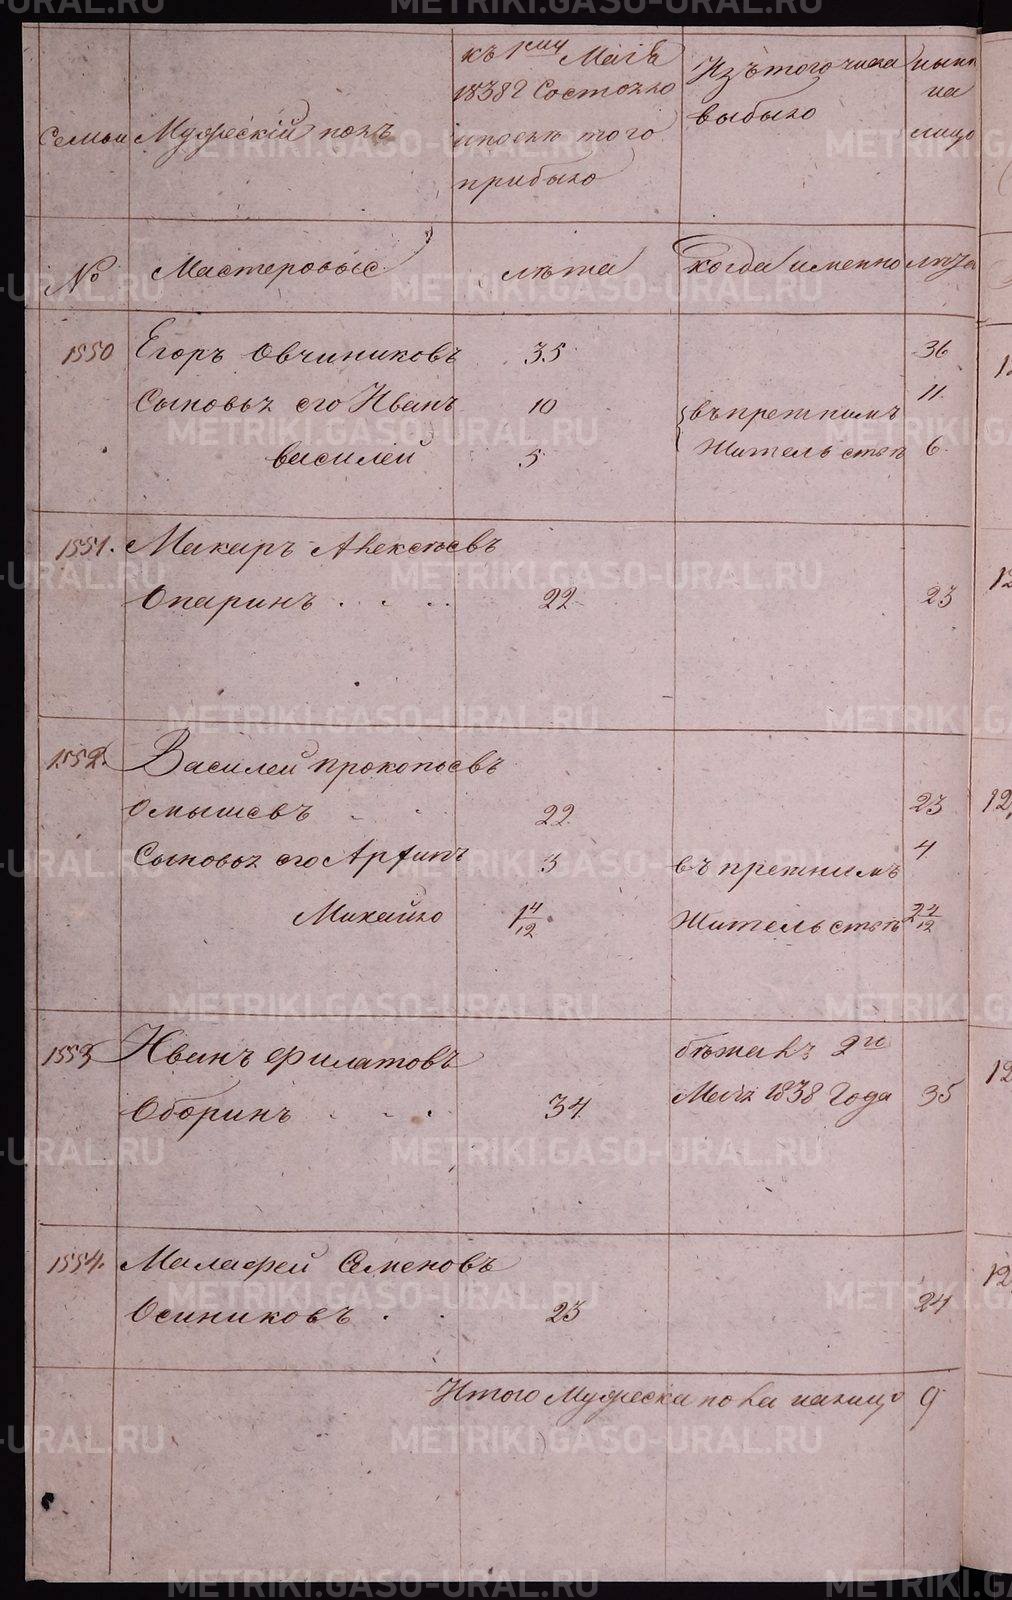 Семьи Мужескiй полъ
къ 1му Маiя
1838г Состояло
и послѣ того
прибыло
Изъ того числа
выбыло
нынѣ
на
лицо
№ Мастеровые лѣта когда именно лѣта
1550 Егоръ Овчиниковъ 35 36
Сыновья его Иванъ 10 въ прежнимъ 11
василей 5 Жительствѣ 6
1551. Макаръ Алексѣевъ
Опаринъ 22 23
1552. Василей прокопьевъ
Омышевъ 22 23
Сыновья его Архипъ 3 въ прежнимъ 4
Михайло 1 4/12 Жительствѣ 2 4/12
1553 Иванъ Филатовъ бѣжалъ 2го
Оборинъ 34 Маiя 1838 Года 35
1554. Малафей Семеновъ
Осиниковъ 23 24
Итого Мужеска пола налицо 9
METRIKI.GASO-URAL.RU